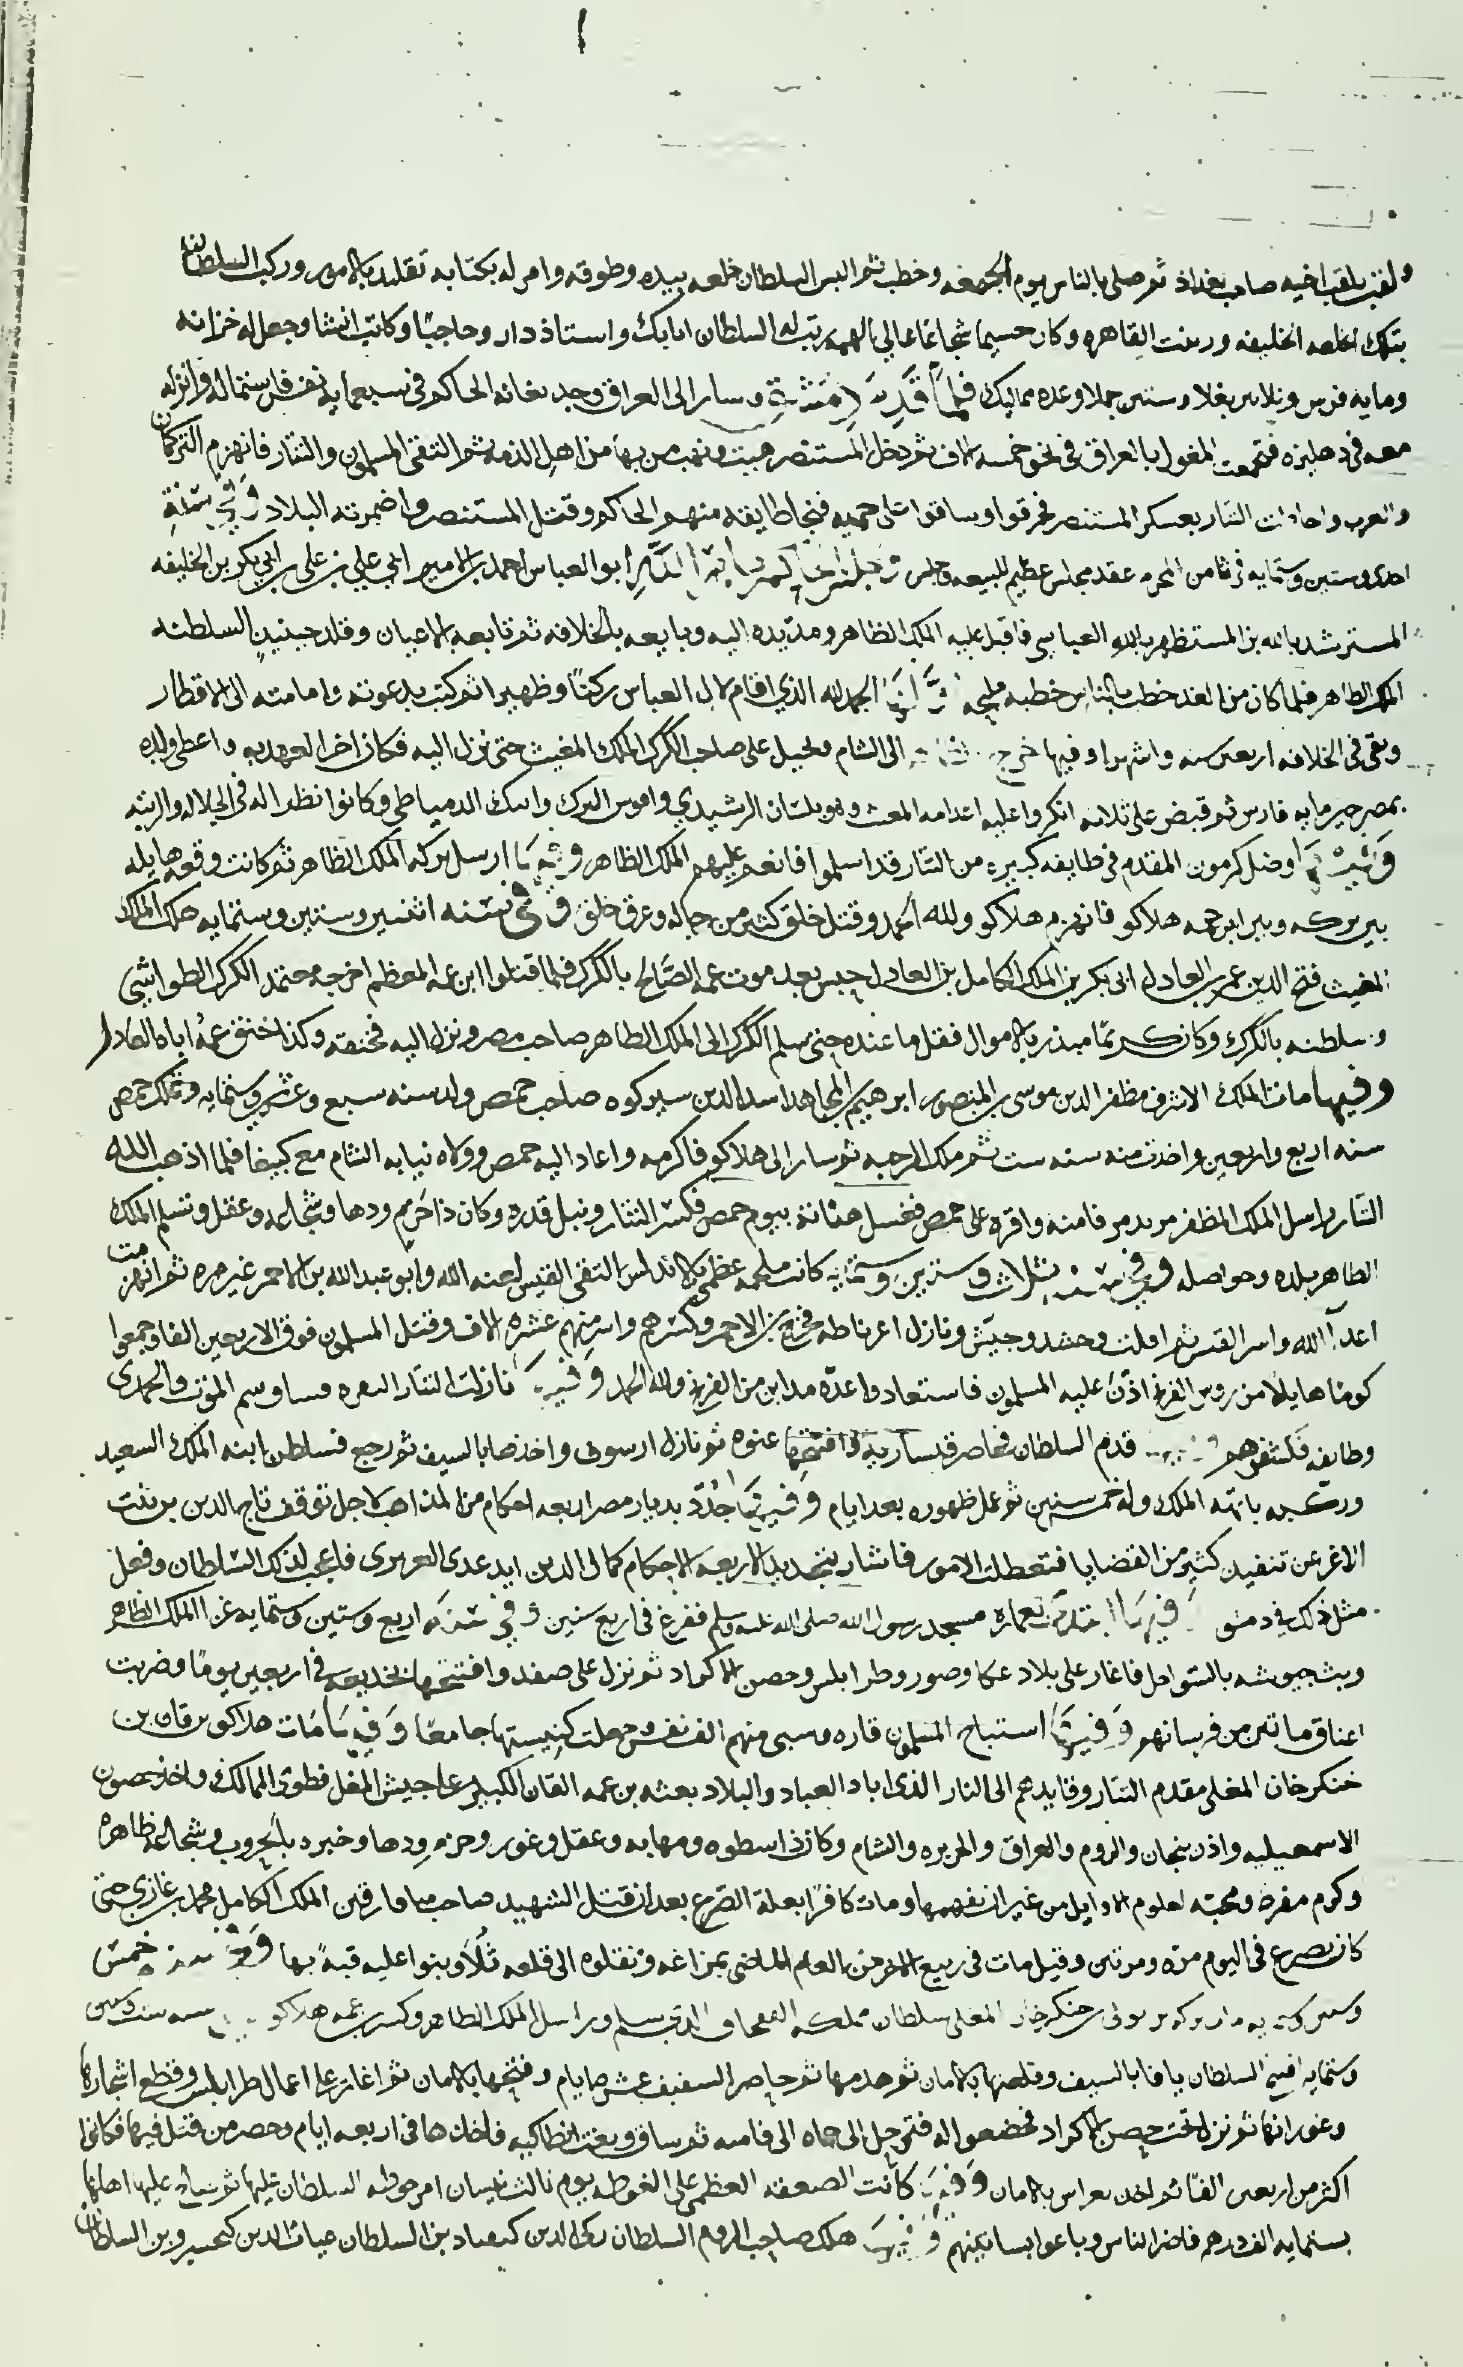 ولقب بلقب اخيه صاحب بغداد ثم صلى بالناس يوم الجمعه وخطب ثم البس السلطان خلعه بيده وطوقه وامر له بكتابه تقليد بالامور وركب السلطان
بتلك الخلعه الخليفيه وزينت القاهره وكان جسيما شجاعا عالي الهمه رتب له السلطان اتابك واستاذ دار وحاجبا وكاتب انشا وجعل له خزانه
ومايه فرس وثلاثين بغلا وستين جملا وعده مماليك فلما قدم دمشق وسار الى العراق وجد بعانه الحاكم في سبعمايه نفس فاستماله وانزله
معه في دهليزه فتجمعت المغول بالعراق في نحو خمسه الاف ثم دخل المستنصر هيت ونهب من بها من اهل الذمه ثم التقى المسلمون والتتار فانهزم التركمان
والعرب واحاطت التتار بعسكر المستنصر فخرقوا وساقوا على حميه فنجا طايفه منهم الحاكم وقتل المستنصر واضمرته البلاد وفي سنة
احدى وستين وستمايه في ثامن المحرم عقد مجلس عظيم للبيعه وجلس الحاكم بامر الله ابو العباس احمد بن الامير ابي علي بن علي بن ابي بكر بن الخليفه
المسترشد بالله بن المستظهر بالله العباسي فاقبل عليه الملك الظاهر ومد يده اليه وبايعه بالخلافه ثم تابعه الاعيان وقلد حينيذ السلطنه
الملك الظاهر فلما كان من الغد خطب بالناس خطبه مليحه اولها الحمد لله الذي اقام لال العباس ركنا وظهيرا ثم كتب بدعوته وامامته الى الاقطار
وبقى في الخلافه اربعين سنه واشهرا وفيها خرج الظاهر الى الشام وتحيل على صاحب الكرك الملك المغيث حتى نزل اليه فكان اخر العهد به واعطى ولده
بمصر خبز مايه فارس ثم قبض على ثلاثه انكروا عليه اعدامه المغيث وهو بلبان الرشيدي واقوش البرك وايبك الدمياطي وكانوا نظرا له في الجلاله والرتبه
وفيها وصل كرمون المقدم في طايفه كبيره من التتار قد اسلموا فانعم عليهم الملك الظاهر وفيها ارسل بركه الملك الظاهر ثم كانت وقعه هايله
بين بركه وبين ابن عمه هلاكو فانهزم هلاكو ولله الحمد وقتل خلق كثير من رجاله وغرق خلق وفي سنه اثنين وستين وستمايه هلك الملك
المغيث فتح الدين عمر بن العادل ابي بكر بن الملك الكامل بن العادل حبس بعد موت عمه الصالح بالكرك فلما قتلوا ابن عمه المعظم اخرجه معتمد الكرك الطواشي
وسلطنه بالكرك وكان كريما مبذر بالاموال فقل ما عنده حتى سلم الكرك الى الملك الظاهر صاحب مصر ونزل اليه فخنقه وكذا خنق عمه اباه العادل
وفيها مات الملك الاشرف مظفر الدين موسى بن المنصور ابرهيم بن المجاهد اسد الدين شيركوه صاحب حمص ولد سنه سبع وعشرين وستمايه وتملك حمص
سنه اربع واربعين واخذت منه سنه ست ثم ملك الرحبه ثم سار الى هلاكو فاكرمه واعاد اليه حمص وولاه نيابه الشام مع كتبغا فلما اذهب الله
التتار راسل الملك المظفر من تدمر فامنه واقره على حمص فغسل هناته بيوم حمص فكسر التتار ونبل قدره وكان ذا حزم ودها وشجاعه وعقل وتسلم الملك
الظاهر بلده وحواصله وفي سنه ثلاث وستين وستمايه كانت ملحمه عظمى بالاندلس التقى الفنش لعنه الله وابو عبد الله بن الاحمر غير مره ثم انهزمت
اعداء الله واسر الفنش ثم افلت وحشد وجيش ونازل اغرناطه فخرج ابن الاحمر وكسرهم واسر منهم عشره الاف وقتل المسلمون فوق الاربعين الفا وجمعوا
كوما هايلا من روس الفرنج اذن عليه المسلمون فاستعادوا عدة مداين من الفرنج ولله الحمد وفيها نازلت التتار البيره فساق سم الموت والمحمدي
وطايفه فكشفوهم وفيها قدم السلطان فحاصر قيساريه وافتتحها عنوه ثم نازل ارسوف واخذها بالسيف ثم رجع فسلطن ابنه الملك السعيد
وركب بابهة الملك وله خمس سنين ثم عمل ظهوره بعد ايام وفيها جدد بديار مصر اربعه احكام من المذاهب لاجل توقف تاج الدين بن بنت
الاعز عن تنفيذ كثير من القضايا فتعطلت الامور فاشار بتجديد الاربعه الاحكام كمالى الدين ايدغدى العزيزى فاعجب لذلك السلطان وفعل
مثل ذلك في دمشق وفيها ابتدئ بعماره مسجد رسول الله صلى الله عليه وسلم ففرغ في اربع سنين وفي سنه اربع وستين وستمايه غزا الملك الظاهر
وبث جيوشه بالسواحل فاغار على بلاد عكا وصور وطرابلس وحصن الاكراد ثم نزل على صفد وافتتحها بخديعه في اربعين يوما وضربت
اعناق مايتين من فرسانهم وفيها استباح المسلمون قاره وسبى منهم الف نفس وجعلت كنيستها جامعا وفيها مات هلاكو بن قان بن
جنكزخان المغلى مقدم التتار وقايدهم الى النار الذى اباد العباد والبلاد بعثه بن عمه القان الكبير على جيش المغل فطوى الممالك واخذ حصون
الاسمعيليه واذربيجان والروم والعراق والجزيره والشام وكان ذا سطوه ومهابه وعقل وغور وحزم ودها وخبره بالحروب وشجاعه ظاهره
وكرم مفرط ومحبه لعلوم الاوايل من غير ان يفهمها ومات كافرا بعلة الصرع بعد ان قتل الشهيد صاحب ميافارقين الملك الكامل محمد بن غازي حتى
كان يصرع في اليوم مرة ومرتين وقيل مات في ربيع الاخر من العام الماضي بمراغه ونقلوه الى قلعه تلا وبنوا عليه قبة بها وفي سنه خمس
وستين وستمايه مات بركه بن توشى بن جنكزخان المغلى سلطان مملكه القفجاق الذى سلم وراسل الملك الظاهر وكسر بن عمه هلاكو وفي سنه ست وستين
وستمايه افتتح السلطان يافا بالسيف وقلعتها بالامان ثم هدمها ثم حاصر الشقيف عشره ايام وفتحها بالامان ثم اغار على اعمال طرابلس وقطع اشجارها
وغور انهارها ثم نزل تحت حصن الاكراد فخضعوا له فترحل الى حماه الى فاميه ثم ساق وبغت انطاكيه فاخذها في اربعه ايام وحصر من قتل فيها فكانوا
اكثر من اربعين الفا ثم اخذ بغراس بالامان وفيها كانت الصعقه العظمى على الغوطه يوم ثالث نيسان اثر حوطه السلطان عليها ثم صالح عليها اهلها
بستمايه الف درهم فاضر الناس وباعوا بساتينهم وفيها هلك صاحب الروم السلطان ركن الدين كيقباد بن السلطان غياث الدين كيخسرو بن السلطان